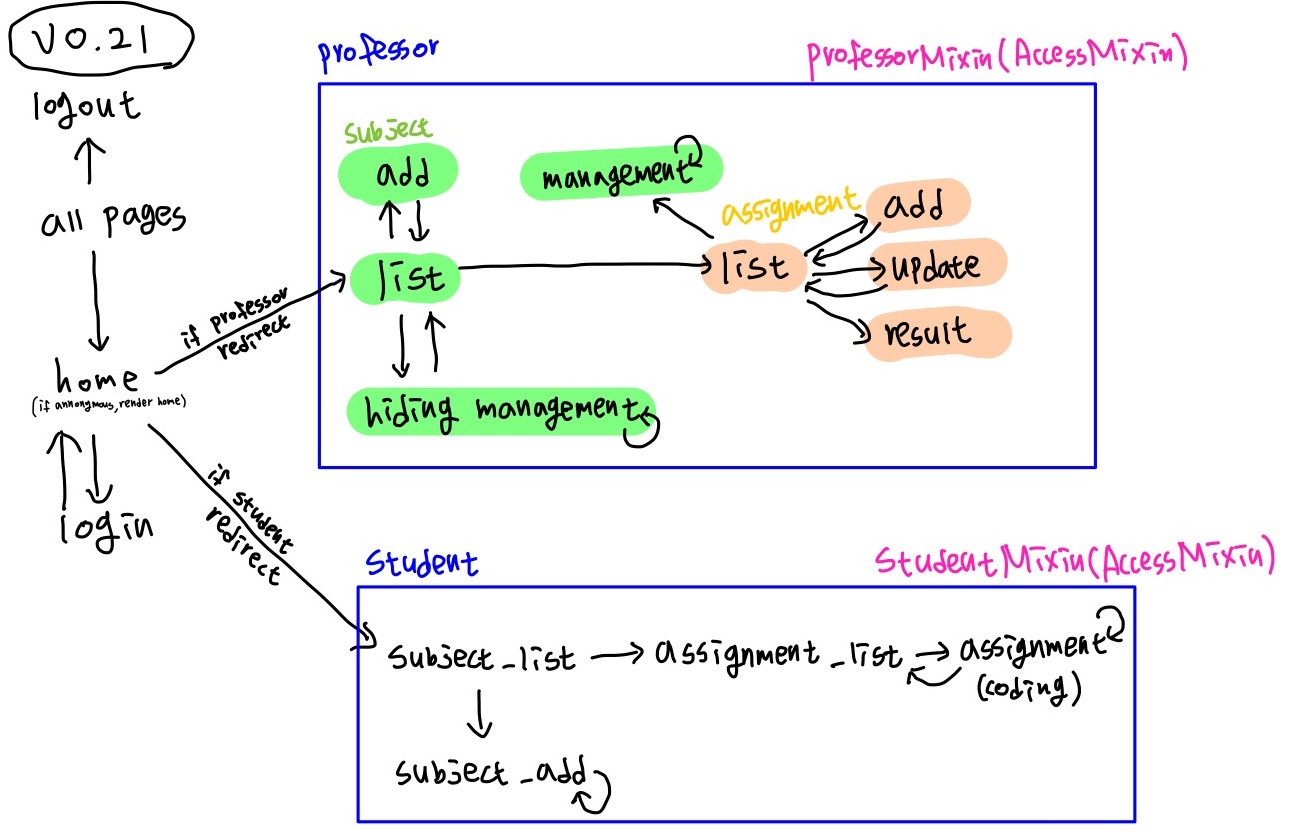 V0.21
logout
all pages
home
(if annongmous, render home)
login
if professor
redirect
if student
redirect
professor
professorMixin(AccessMixin)
subject
add
list
hiding management
management
assignment
list
add
update
result
Student
StudentMixin(AccessMixin)
subject_list
assignment_list
assignment
(coding)
subject_add